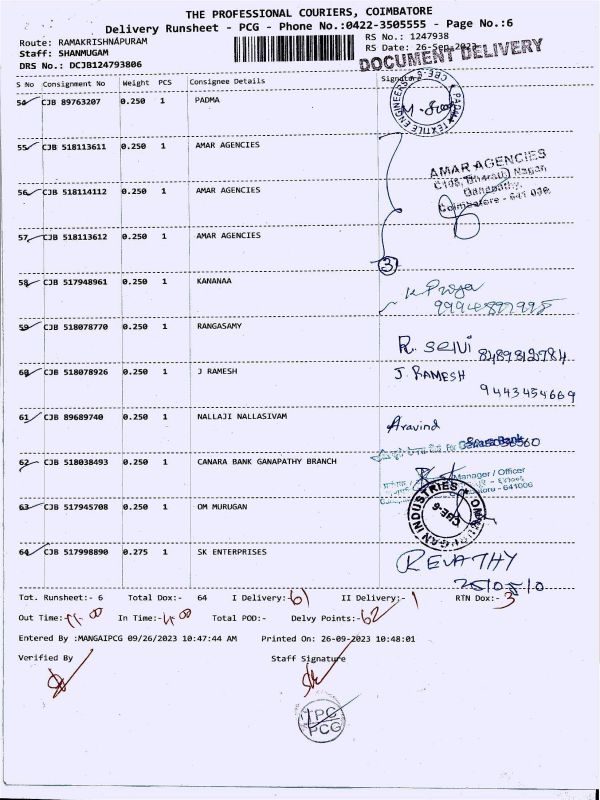 THE PROFESSIONAL COURIERS, COIMBATORE
Delivery Runsheet - PCG - Phone No.:0422-3505555 - Page No.:6
Route: RAMAKRISHNAPURAM
RS No.: 1247938
Staff: SHANMUGAM
RS Date: 26-Sep-2023
DRS No.: DCJB124793806
DOCUMENT DELIVERY
S No Consignment No Weight PCS Consignee Details Signature
54 CJB 89763207 0.250 1 PADMA
PADMA TEXTILE ENGINEERS CBE-6
55 CJB 518113611 0.250 1 AMAR AGENCIES
AMAR AGENCIES
C108, Bharathi Nagar
Ganapathy,
Coimbatore - 641 006.
56 CJB 518114112 0.250 1 AMAR AGENCIES
57 CJB 518113612 0.250 1 AMAR AGENCIES
3
58 CJB 517948961 0.250 1 KANANAA
K Priya
59 CJB 518078770 0.250 1 RANGASAMY
R. Selvi 8489312784
60 CJB 518078926 0.250 1 J RAMESH J. RAMESH
9443454669
61 CJB 89689740 0.250 1 NALLAJI NALLASIVAM Aravind
Canara Bank
62 CJB 518038493 0.250 1 CANARA BANK GANAPATHY BRANCH
Manager / Officer
641006
63 CJB 517945708 0.250 1 OM MURUGAN
OM MURUGAN INDUSTRIES CBE-6
64 CJB 517998890 0.275 1 SK ENTERPRISES REVATHY
Tot. Runsheet:- 6 Total Dox:- 64 I Delivery:- 61 II Delivery:- 1 RTN Dox:- 3
Out Time:- 11-00 In Time:- 4-00 Total POD:- Delvy Points:- 62
Entered By :MANGAIPCG 09/26/2023 10:47:44 AM Printed On: 26-09-2023 10:48:01
Verified By Staff Signature
TPC
PCG